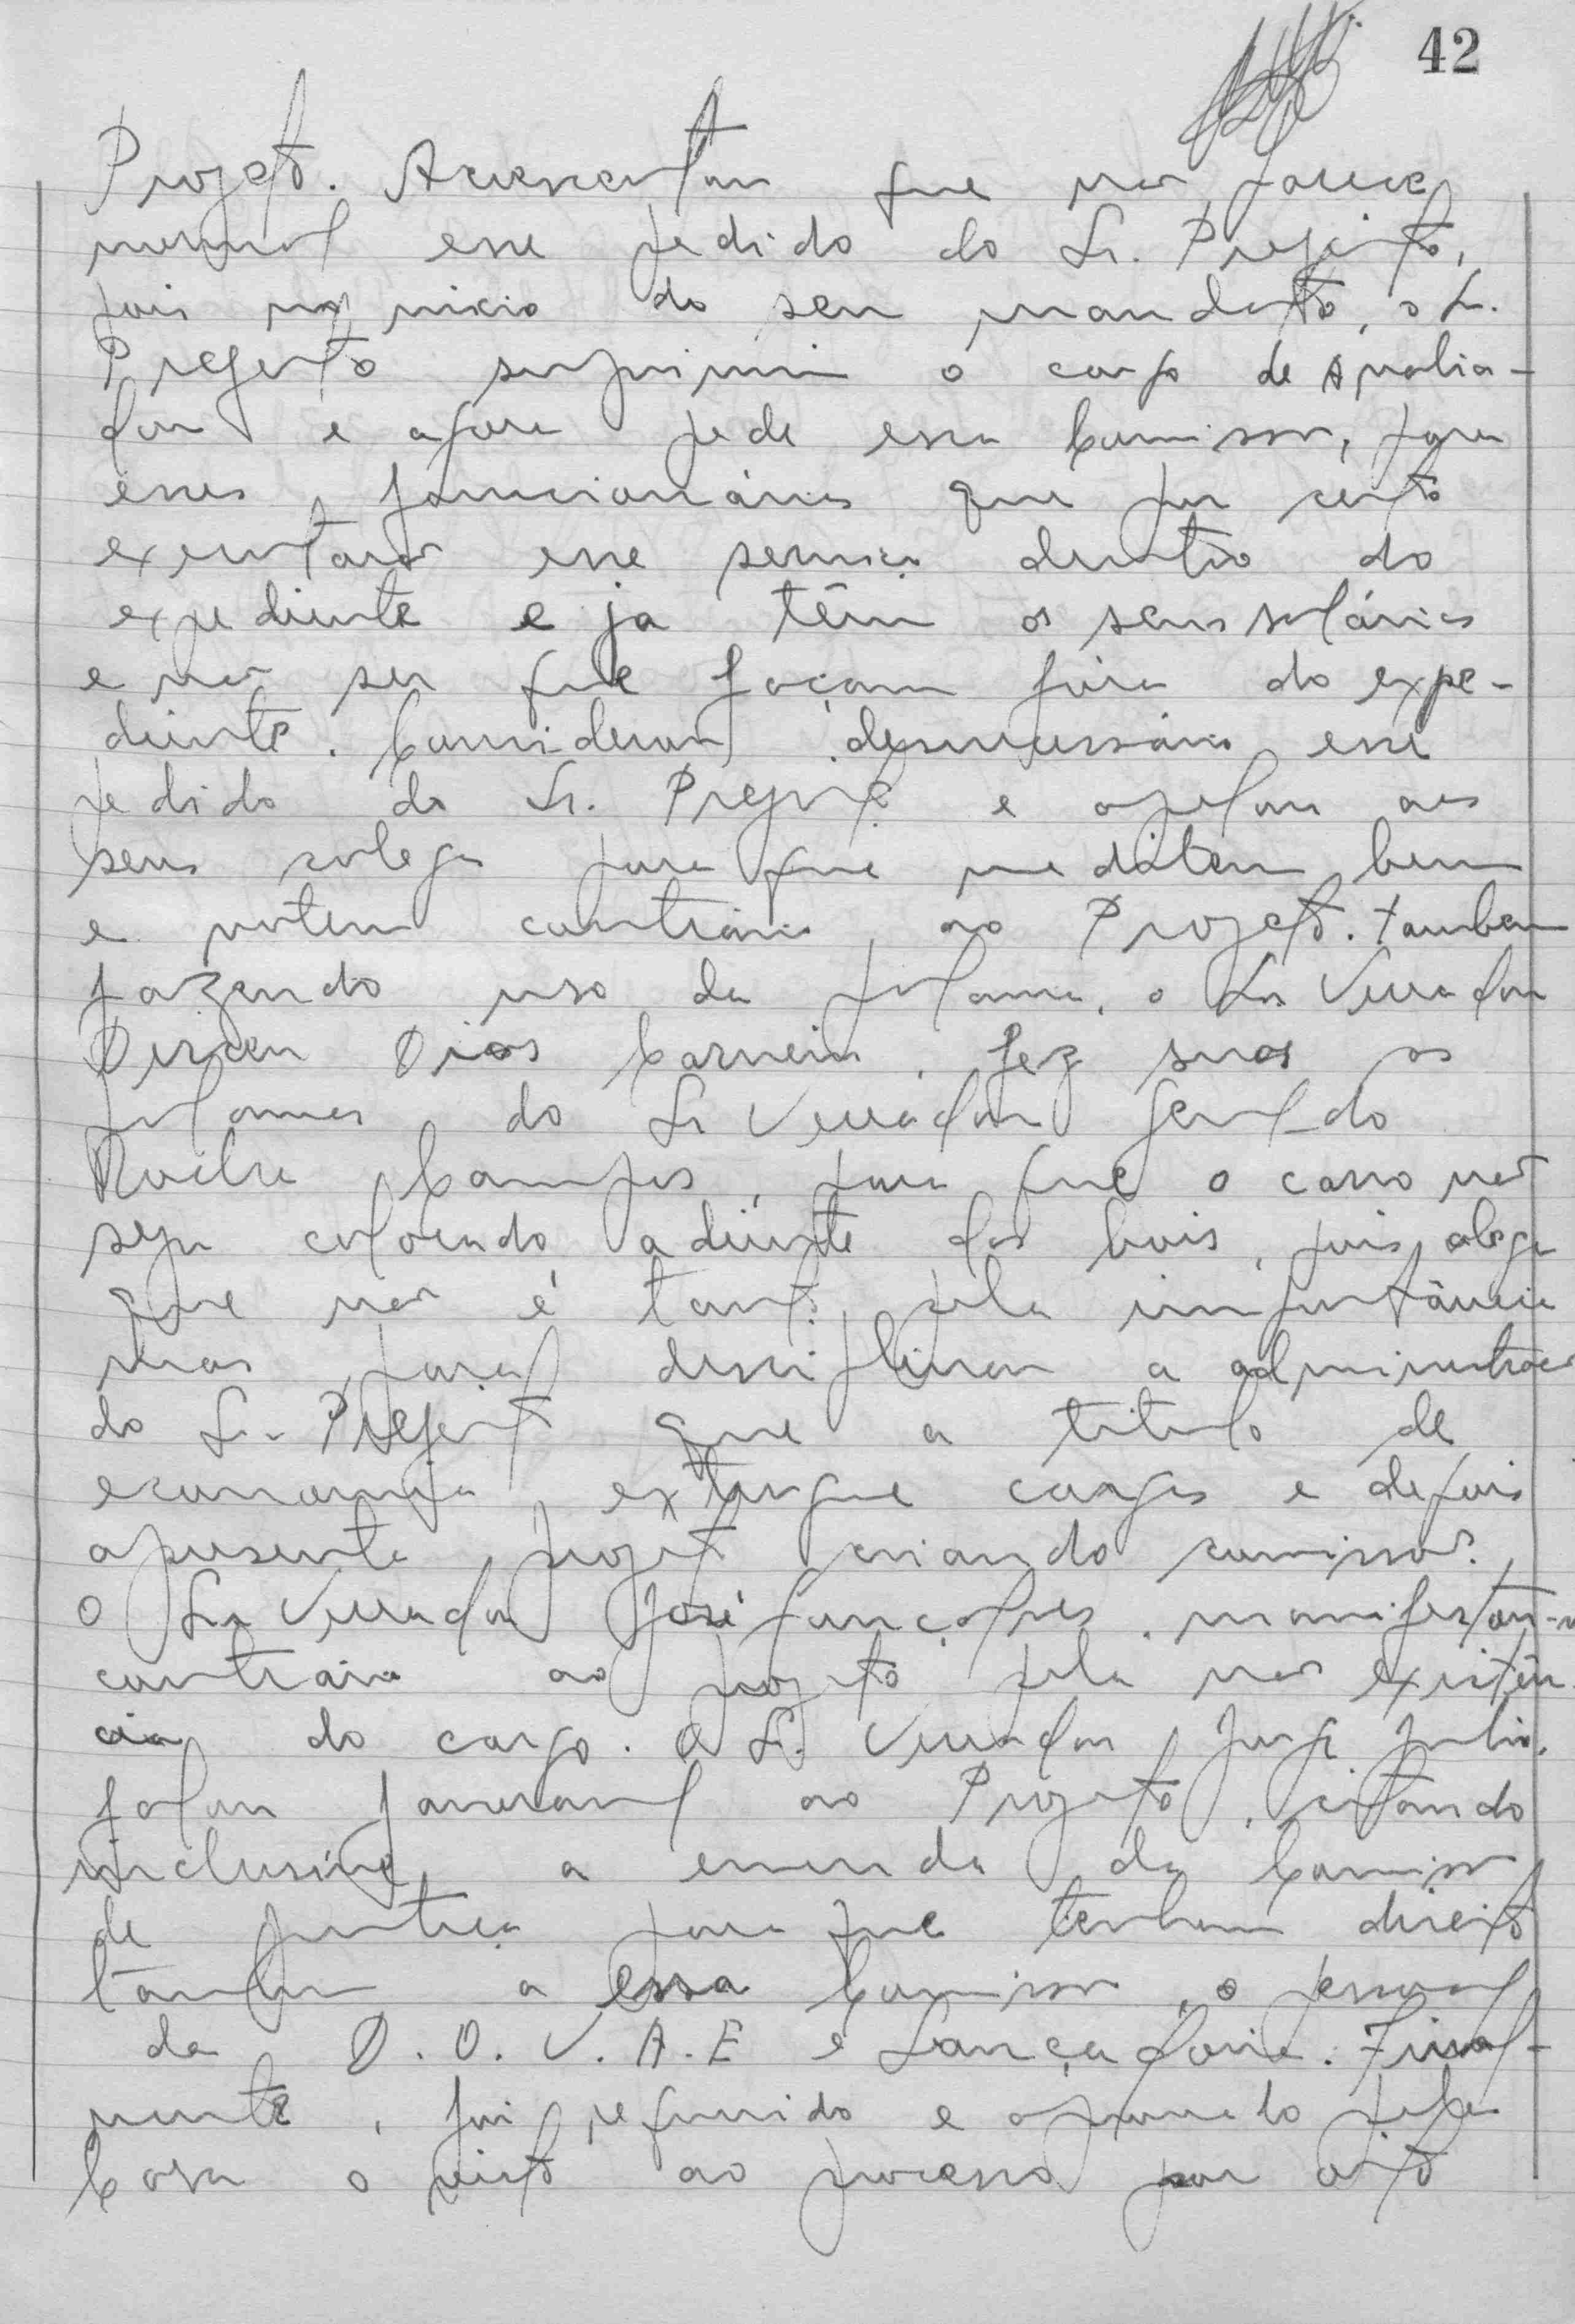 42
Projeto. Acrescentou que não parece
normal esse pedido do Sr. Prefeito,
pois no início do seu mandato, o Sr.
Prefeito suprimiu o cargo de Avalia-
dor e agora pede essa Comissão, para
esses funcionários que por certo
executarão esse serviço dentro do
expediente e ja têm os seus salários
e não sei que façam fora do expe-
diente. Considerou desnecessário esse
pedido do Sr. Prefeito e apelou aos
seus colegas para que meditem bem
e votem contrário ao Projeto. Tambem
fazendo uso da palavra, o Sr. Vereador
Dirceu Dias Carneiro, fez suas as
palavras do Sr Vereador Geraldo
Rocha Campos, para que o carro não
seja colocado adiante dos bois, pois alega
que não é tanto pela importância
mas para disciplinar a administração
do Sr. Prefeito que a titulo de
economia extingue cargos e depois
apresenta projeto criando comissões.
O Sr. Vereador José Gonçalves, manifestou-se
contrário ao projeto pela não existên-
cia do cargo. O Sr. Vereador Jorge Julio,
falou favoravel ao Projeto, citando
inclusive a emenda da Comissão
de Justiça para que tenham direito
tambem a essa Comissão, o pessoal
da D.O.V.A.E e Lançadoria. Final-
mente, foi requerido e aprovado pela
Casa o visto ao processo por oito